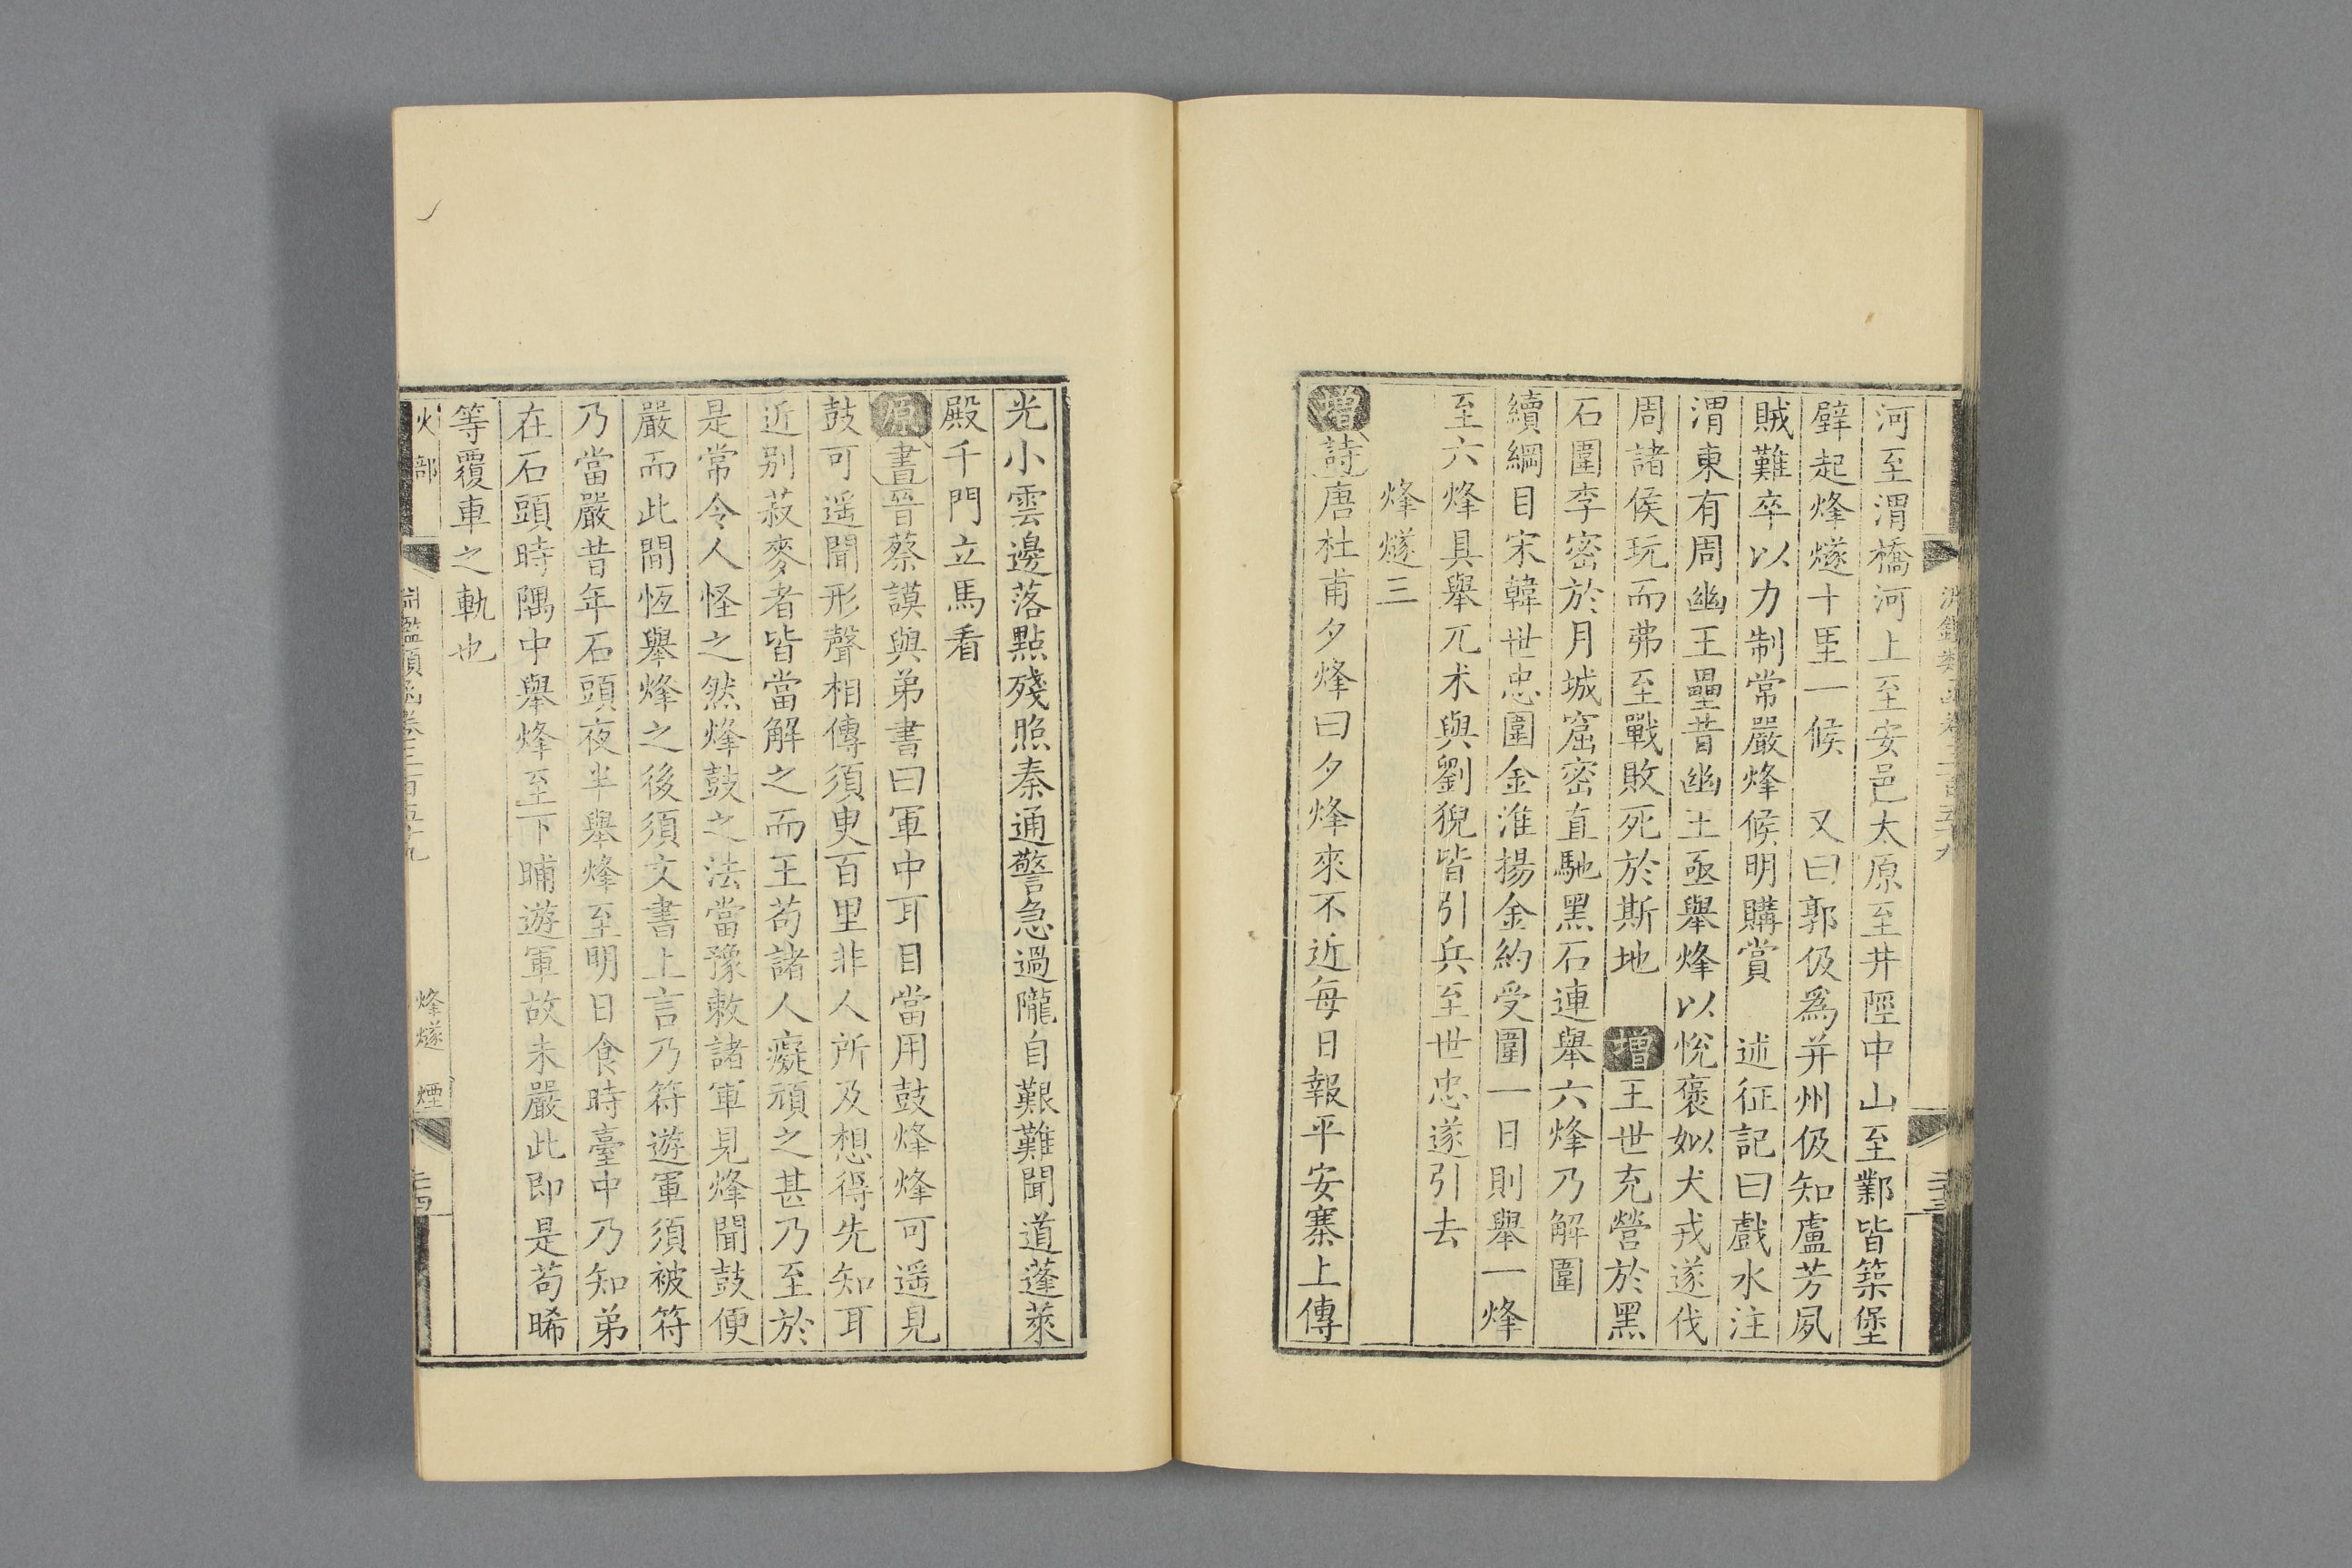 河至渭橋河上至安邑太原至井陘中山至鄴皆築堡
壁起烽燧十里一候　又曰郭伋爲并州伋知盧芳夙
賊難卒以力制常嚴烽候明購賞　述征記曰戲水注
渭東有周幽王壘昔幽王亟舉烽以悅褒姒犬戎遂伐
周諸侯玩而弗至戰敗死於斯地　增王世充營於黑
石圍李密於月城窟密直馳黑石連舉六烽乃解圍
續綱目宋韓世忠圍金淮揚金約受圍一日則舉一烽
至六烽具舉兀术與劉猊皆引兵至世忠遂引去
烽燧三
增詩唐杜甫夕烽曰夕烽來不近每日報平安寨上傳
光小雲邊落點殘照秦通警急過隴自艱難聞道蓬萊
殿千門立馬看
原書晉蔡謨與弟書曰軍中耳目當用鼓烽烽可遥見
鼓可遥聞形聲相傳須臾百里非人所及想得先知耳
近别菽麥者皆當解之而王苟諸人癡頑之甚乃至於
是常令人怪之然烽鼓之法當豫敕諸軍見烽聞鼓便
嚴而此間恆舉烽之後須文書上言乃符遊軍須被符
乃當嚴昔年石頭夜半舉烽至明日食時臺中乃知弟
在石頭時隅中舉烽至下晡遊軍故未嚴此即是苟晞
等覆車之軌也
火部
淵鑑類函卷三百五十九
烽燧　煙
二十四